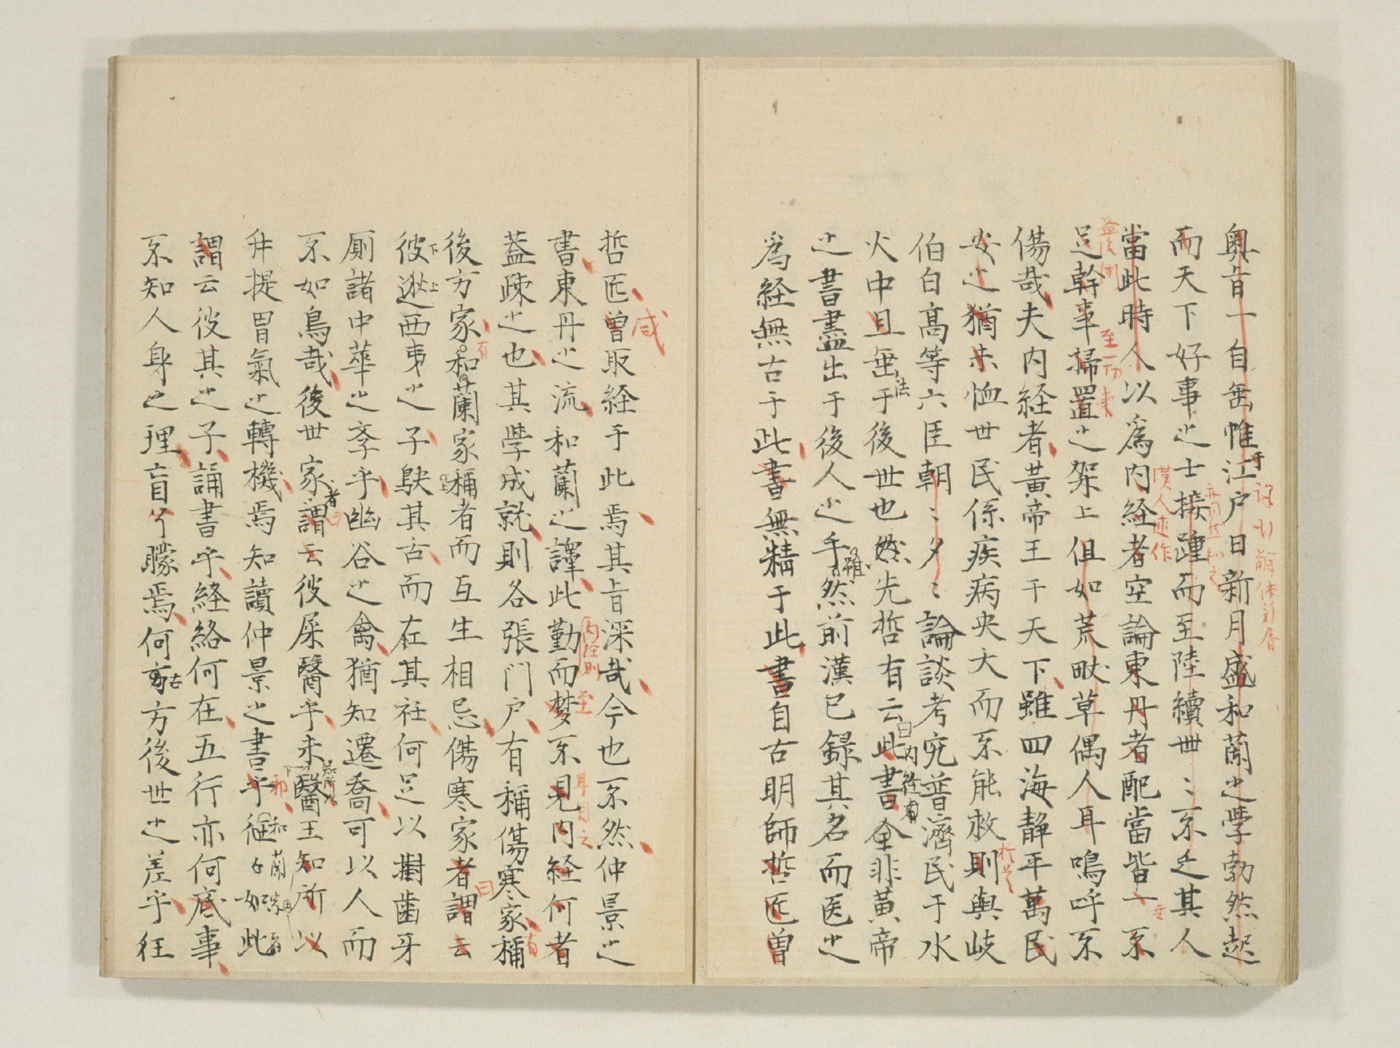 奥旨一自無帷江戸日新月盛和蘭之学勃然起
而天下好事之士接踵而至陸續世〻不乏其人
當此時人以為内経者空論東丹者配當皆一不
足幹事掃置之架上但如荒畎草偶人耳嗚呼不
傷哉夫内経者黄帝王于天下雖四海静平萬民
安之猶未恤世民係疾病夾大而不能救則與岐
伯白高等六臣朝〻夕〻論談考究普濟民于水
火中且垂于後世也然先哲有云此書全非黄帝
之書盡出于後人之手然前漢已録其名而医之
為経無古于此書無精于此書自古明師哲匠曽
哲匠曽取経于此焉其旨深哉今也不然仲景之
書東丹之流和蘭之譯此勤而梦不見内経何者
蓋疎之也其学成就則各張門戸有稱傷寒家稱
後方家和蘭家稱者而互生相忌傷寒家者謂云
彼逖西夷之子駃其古而在其社何足以對歯牙
厠諸中華之季乎幽谷之禽猶知遷喬可以人而
不如鳥哉後世家謂云彼屎醫乎未醫王知所以
升提胃氣之轉機焉知讀仲景之書乎往〻如此
謂云彼其之子誦書乎経絡何在五行亦何底事
不知人身之理盲兮矇焉何方後世之差乎往
咸
漢人述作
至